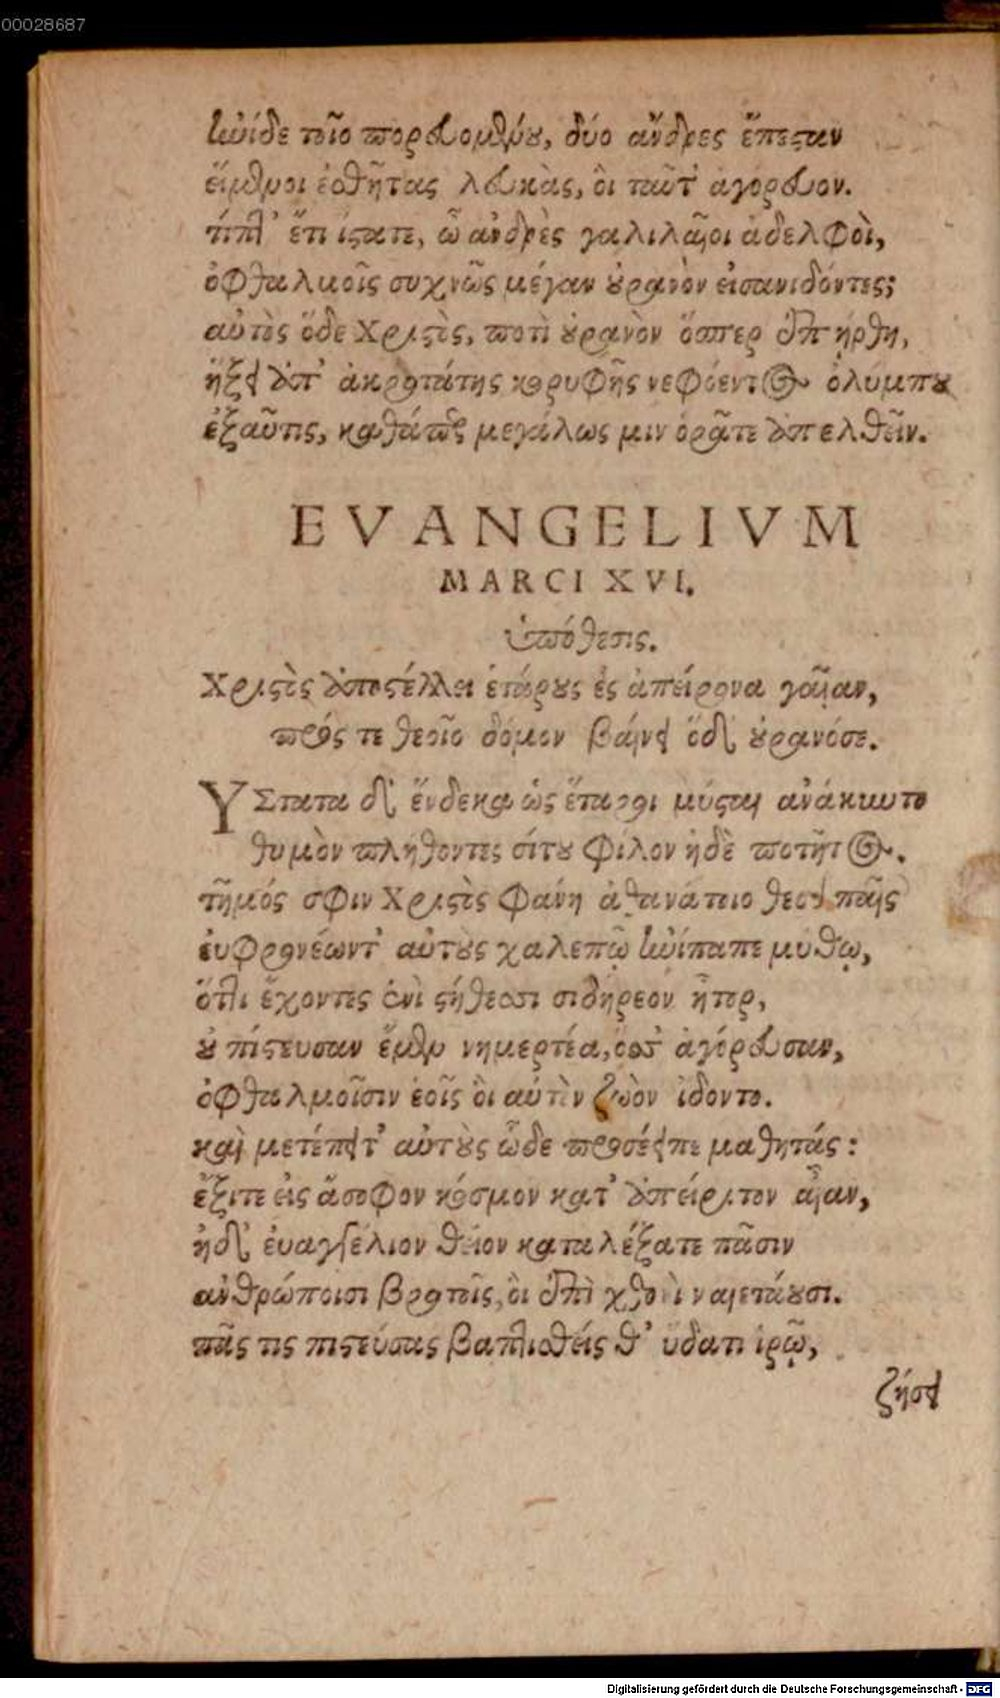 00028687
ἠνίδε τοῖο πορευομένου, δύο ἄνδρες ἔπεσταν
εἵμενοι ἐσθῆτας λευκὰς, οἳ ταῦτ' ἀγόρευον.
τίπτ' ἔτι ἵστατε, ὦ ἄνδρὲς γαλιλαῖοι ἀδελφοὶ,
ὀφθαλμοῖς συχνῶς μέγαν οὐρανὸν εἰσανιδόντες;
αὐτὸς ὅδε Χριστὸς, ποτὶ οὐρανὸν ὅσπερ ἐπήρθη,
ἥξει ἀπ' ἀκροτάτης κορυφῆς νεφόεντος ὀλύμπου
ἐξαῦτις, καθάπερ μεγάλως μιν ὁρᾶτε ἀπελθεῖν.
EVANGELIVM
MARCI XVI.
ὑπόθεσις.
Χριστὸς ἀποστέλλει ἑτάρους ἐς ἀπείρονα γαῖαν,
πρός τε θεοῖο δόμον βαίνει ὅδ' οὐρανόσε.
ΥΣτατα δ' ἕνδεκα ὡς ἕταροι μύσται ἀνάκειντο
θυμὸν πλήθοντες σίτου φίλον ἠδὲ ποτῆτος.
τῆμός σφιν Χριστὸς φάνη ἀθανάτοιο θεοῦ παῖς
ἐυφρονέωντ' αὐτοὺς χαλεπῷ ἠνίπαπε μύθῳ,
ὅττι ἔχοντες ἐνὶ στήθεσσι σιδήρεον ἦτορ,
οὐ πίστευσαν ἔμεν νημερτέα, ὅσσ' ἀγόρευσαν,
ὀφθαλμοῖσιν ἑοῖς οἳ αὐτὸν ζωὸν ἴδοντο.
καὶ μετέπειτ' αὐτοὺς ὧδε προσέειπε μαθητάς:
ἔξιτε εἰς ἄσοφον κόσμον κατ' ἀπείριτον αἶαν,
ἠδ' ἐυαγγέλιον θεῖον καταλέξατε πᾶσιν
ἀνθρώποισι βροτοῖς, οἳ ἐπὶ χθονὶ ναιετάουσι.
πᾶς τις πιστεύσας βαπτισθείς θ' ὕδατι ἱρῷ,
ζήσει
Digitalisierung gefördert durch die Deutsche Forschungsgemeinschaft - DFG